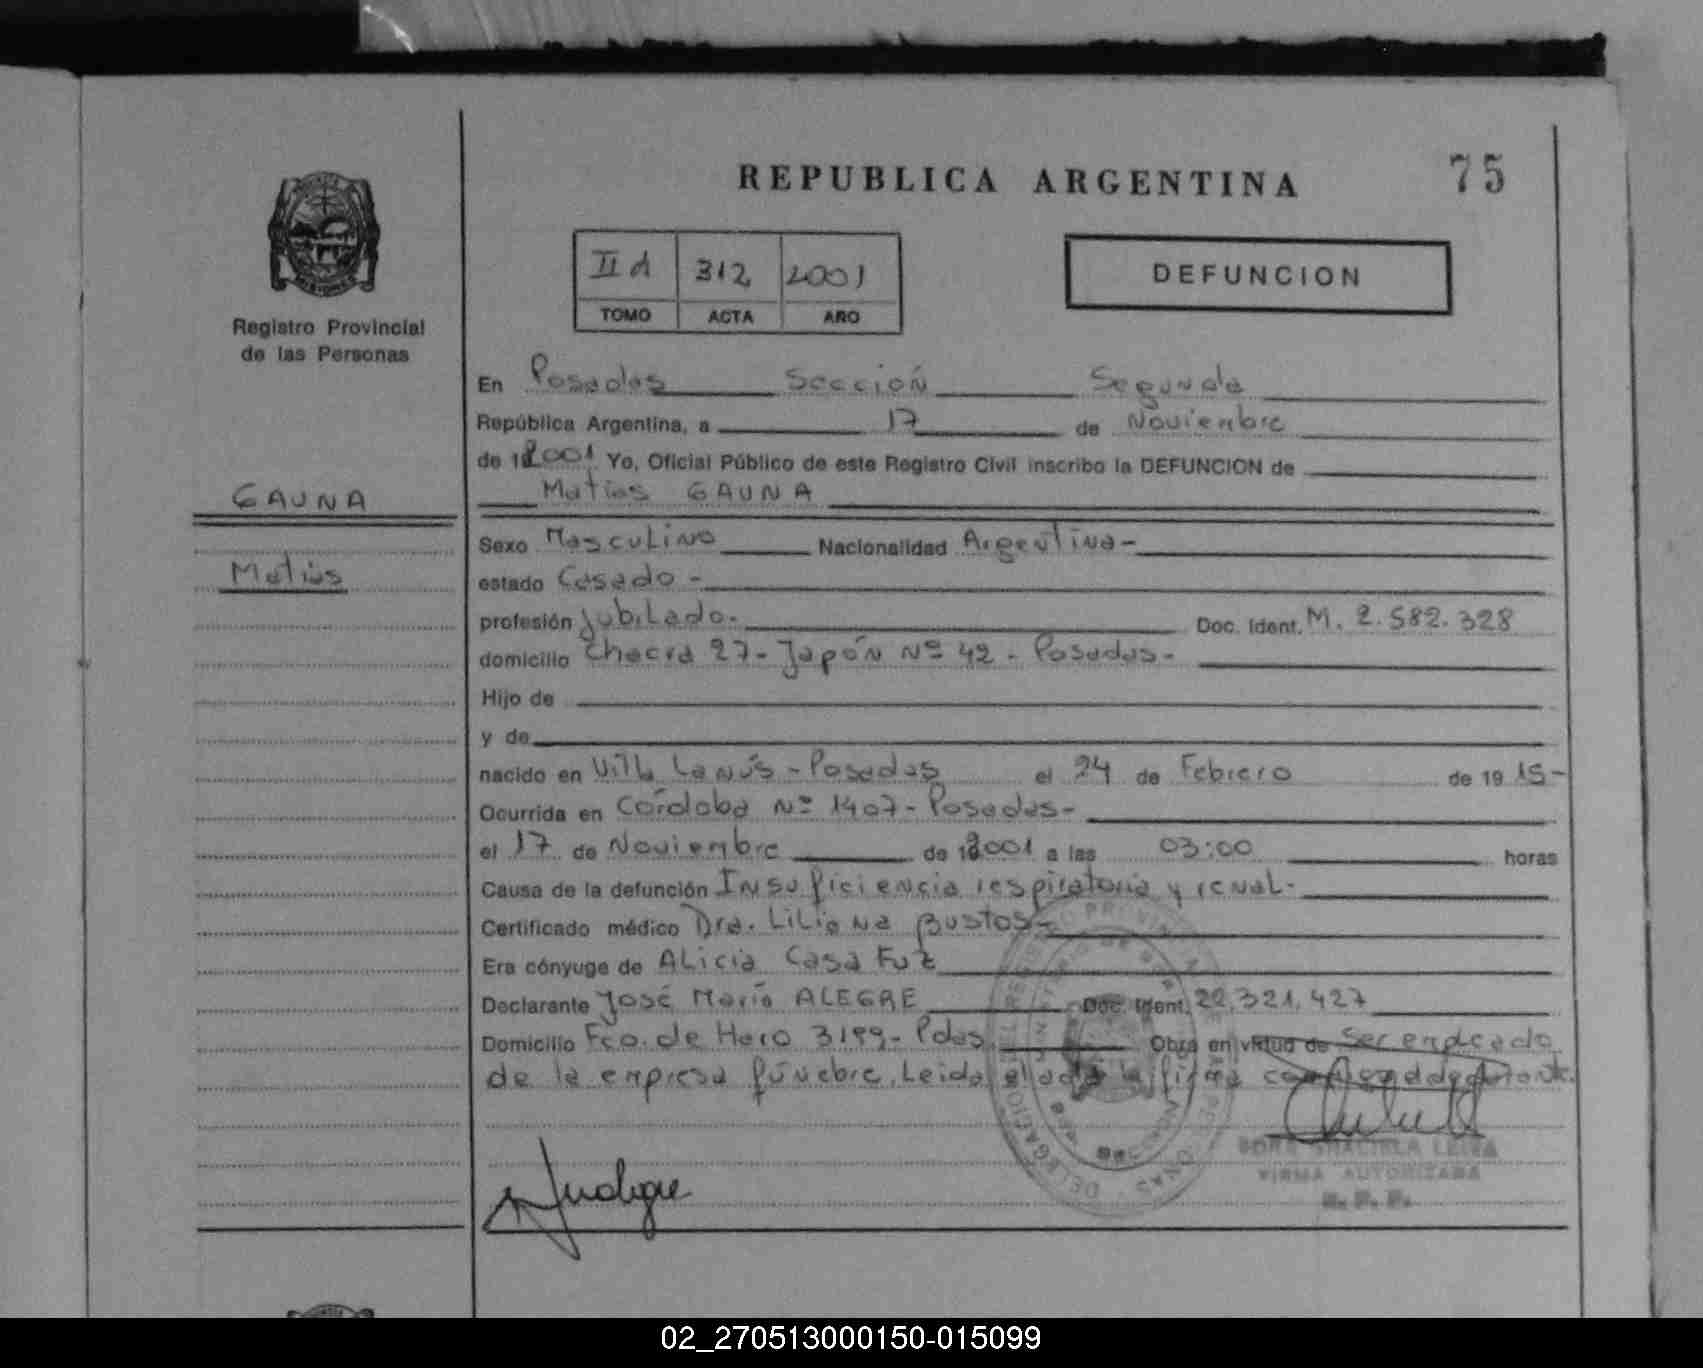 REPUBLICA ARGENTINA
75
MISIONES
Registro Provincial
de las Personas
II d 312 2001
TOMO ACTA AÑO
DEFUNCION
En Posadas Sección Segunda
República Argentina, a 17 de Noviembre
de 2001 Yo, Oficial Público de este Registro Civil inscribo la DEFUNCION de
Matías GAUNA
GAUNA
Matías
Sexo Masculino Nacionalidad Argentina-
estado Casado-
profesión Jubilado- Doc. Ident. M. 2.582.328
domicilio Chacra 27- Japón Nº 42- Posadas-
Hijo de
y de
nacido en Villa Lanús-Posadas el 24 de Febrero de 19 15-
Ocurrida en Córdoba Nº 1407-Posadas-
el 17 de Noviembre de 2001 a las 03:00 horas
Causa de la defunción Insuficiencia respiratoria y renal-
Certificado médico Dra. Liliana Bustos-
Era cónyuge de Alicia Casa Fuz
Declarante José María ALEGRE Doc. Ident. 22.321.427
Domicilio Fco. de Haro 3199- Pdas. Obra en virtud de ser empleado
de la empresa fúnebre. Leida el acta la firma
FIRMA AUTORIZADA
R. P. P.
02_270513000150-015099